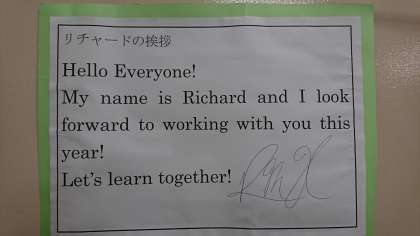 リチャードの挨拶
Hello Everyone!
My name is Richard and I look
forward to working with you this
year!
Let's learn together!